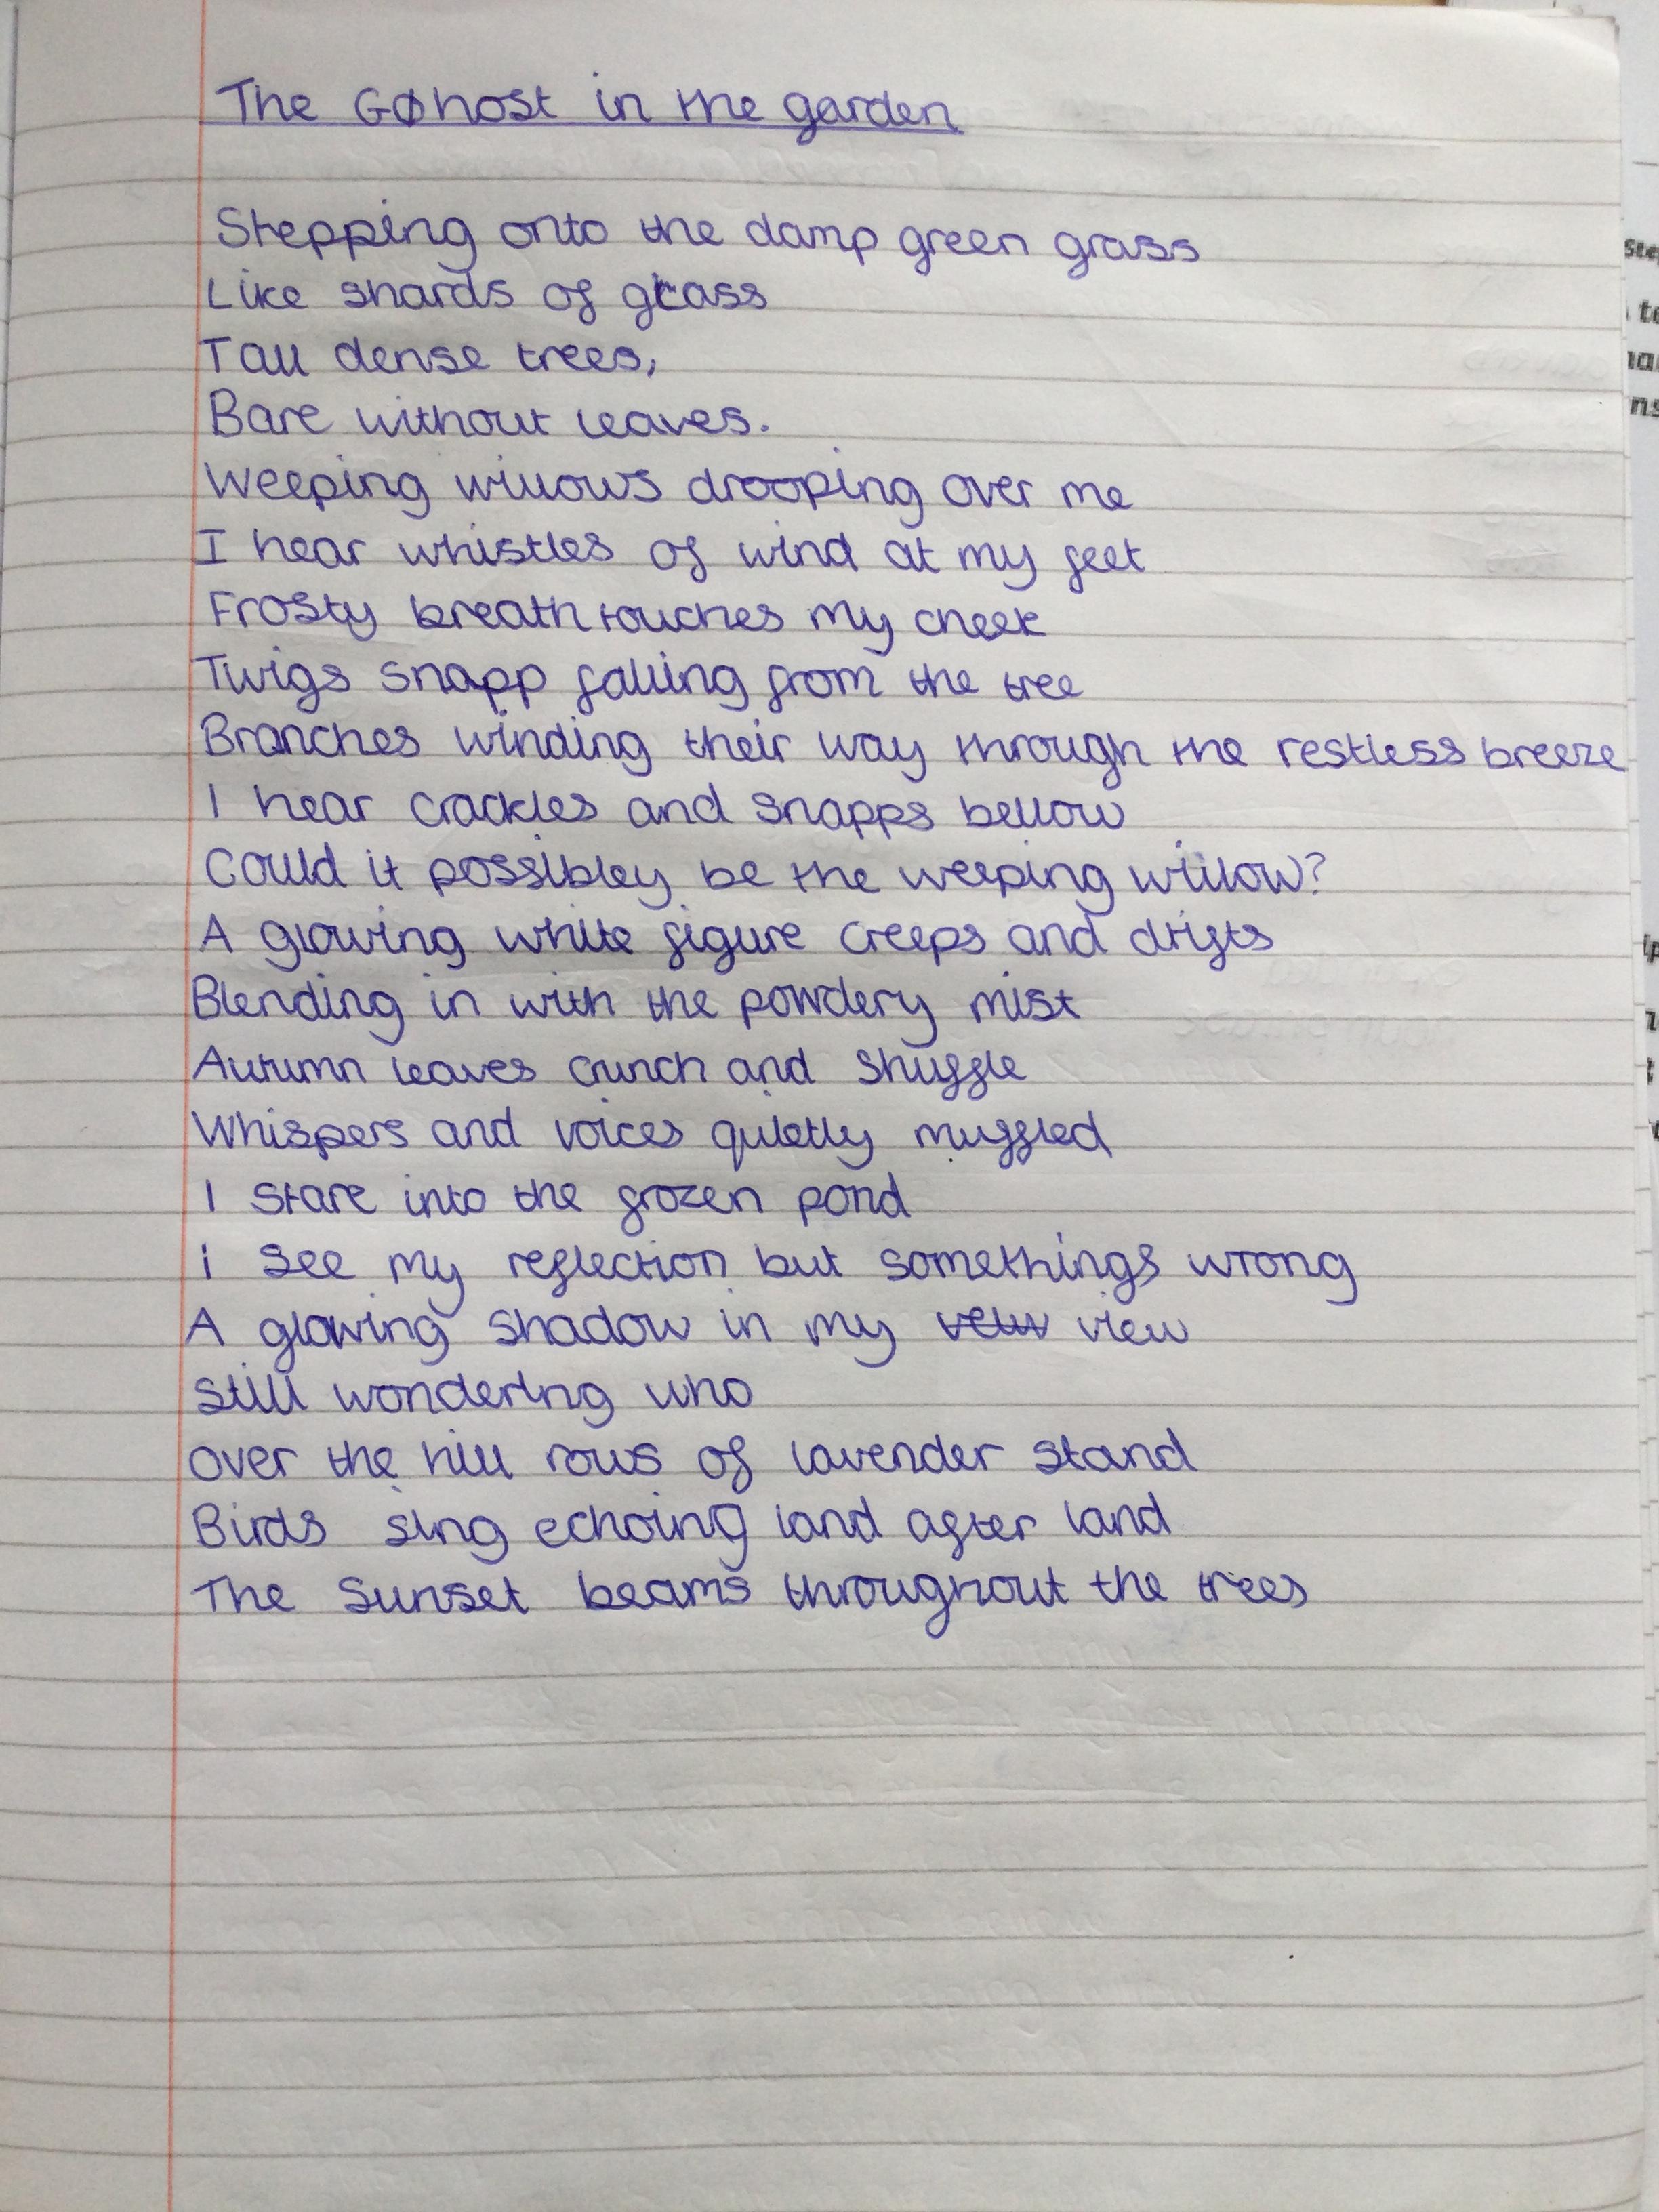 The Ghost in the garden
Stepping onto the damp green grass
Like shards of glass
Tall dense trees,
Bare without leaves.
Weeping willows drooping over me
I hear whistles of wind at my feet
Frosty breath touches my cheek
Twigs snapp falling from the tree
Branches winding their way through the restless breeze
I hear crackles and snapps bellow
Could it possibley be the weeping willow?
A glowing white figure creeps and drifts
Blending in with the powdery mist
Autumn leaves crunch and shuffle
Whispers and voices quietly muffled
I stare into the frozen pond
I see my reflection but somethings wrong
A glowing shadow in my view
Still wondering who
Over the hill rows of lavender stand
Birds sing echoing land after land
The Sunset beams throughout the trees